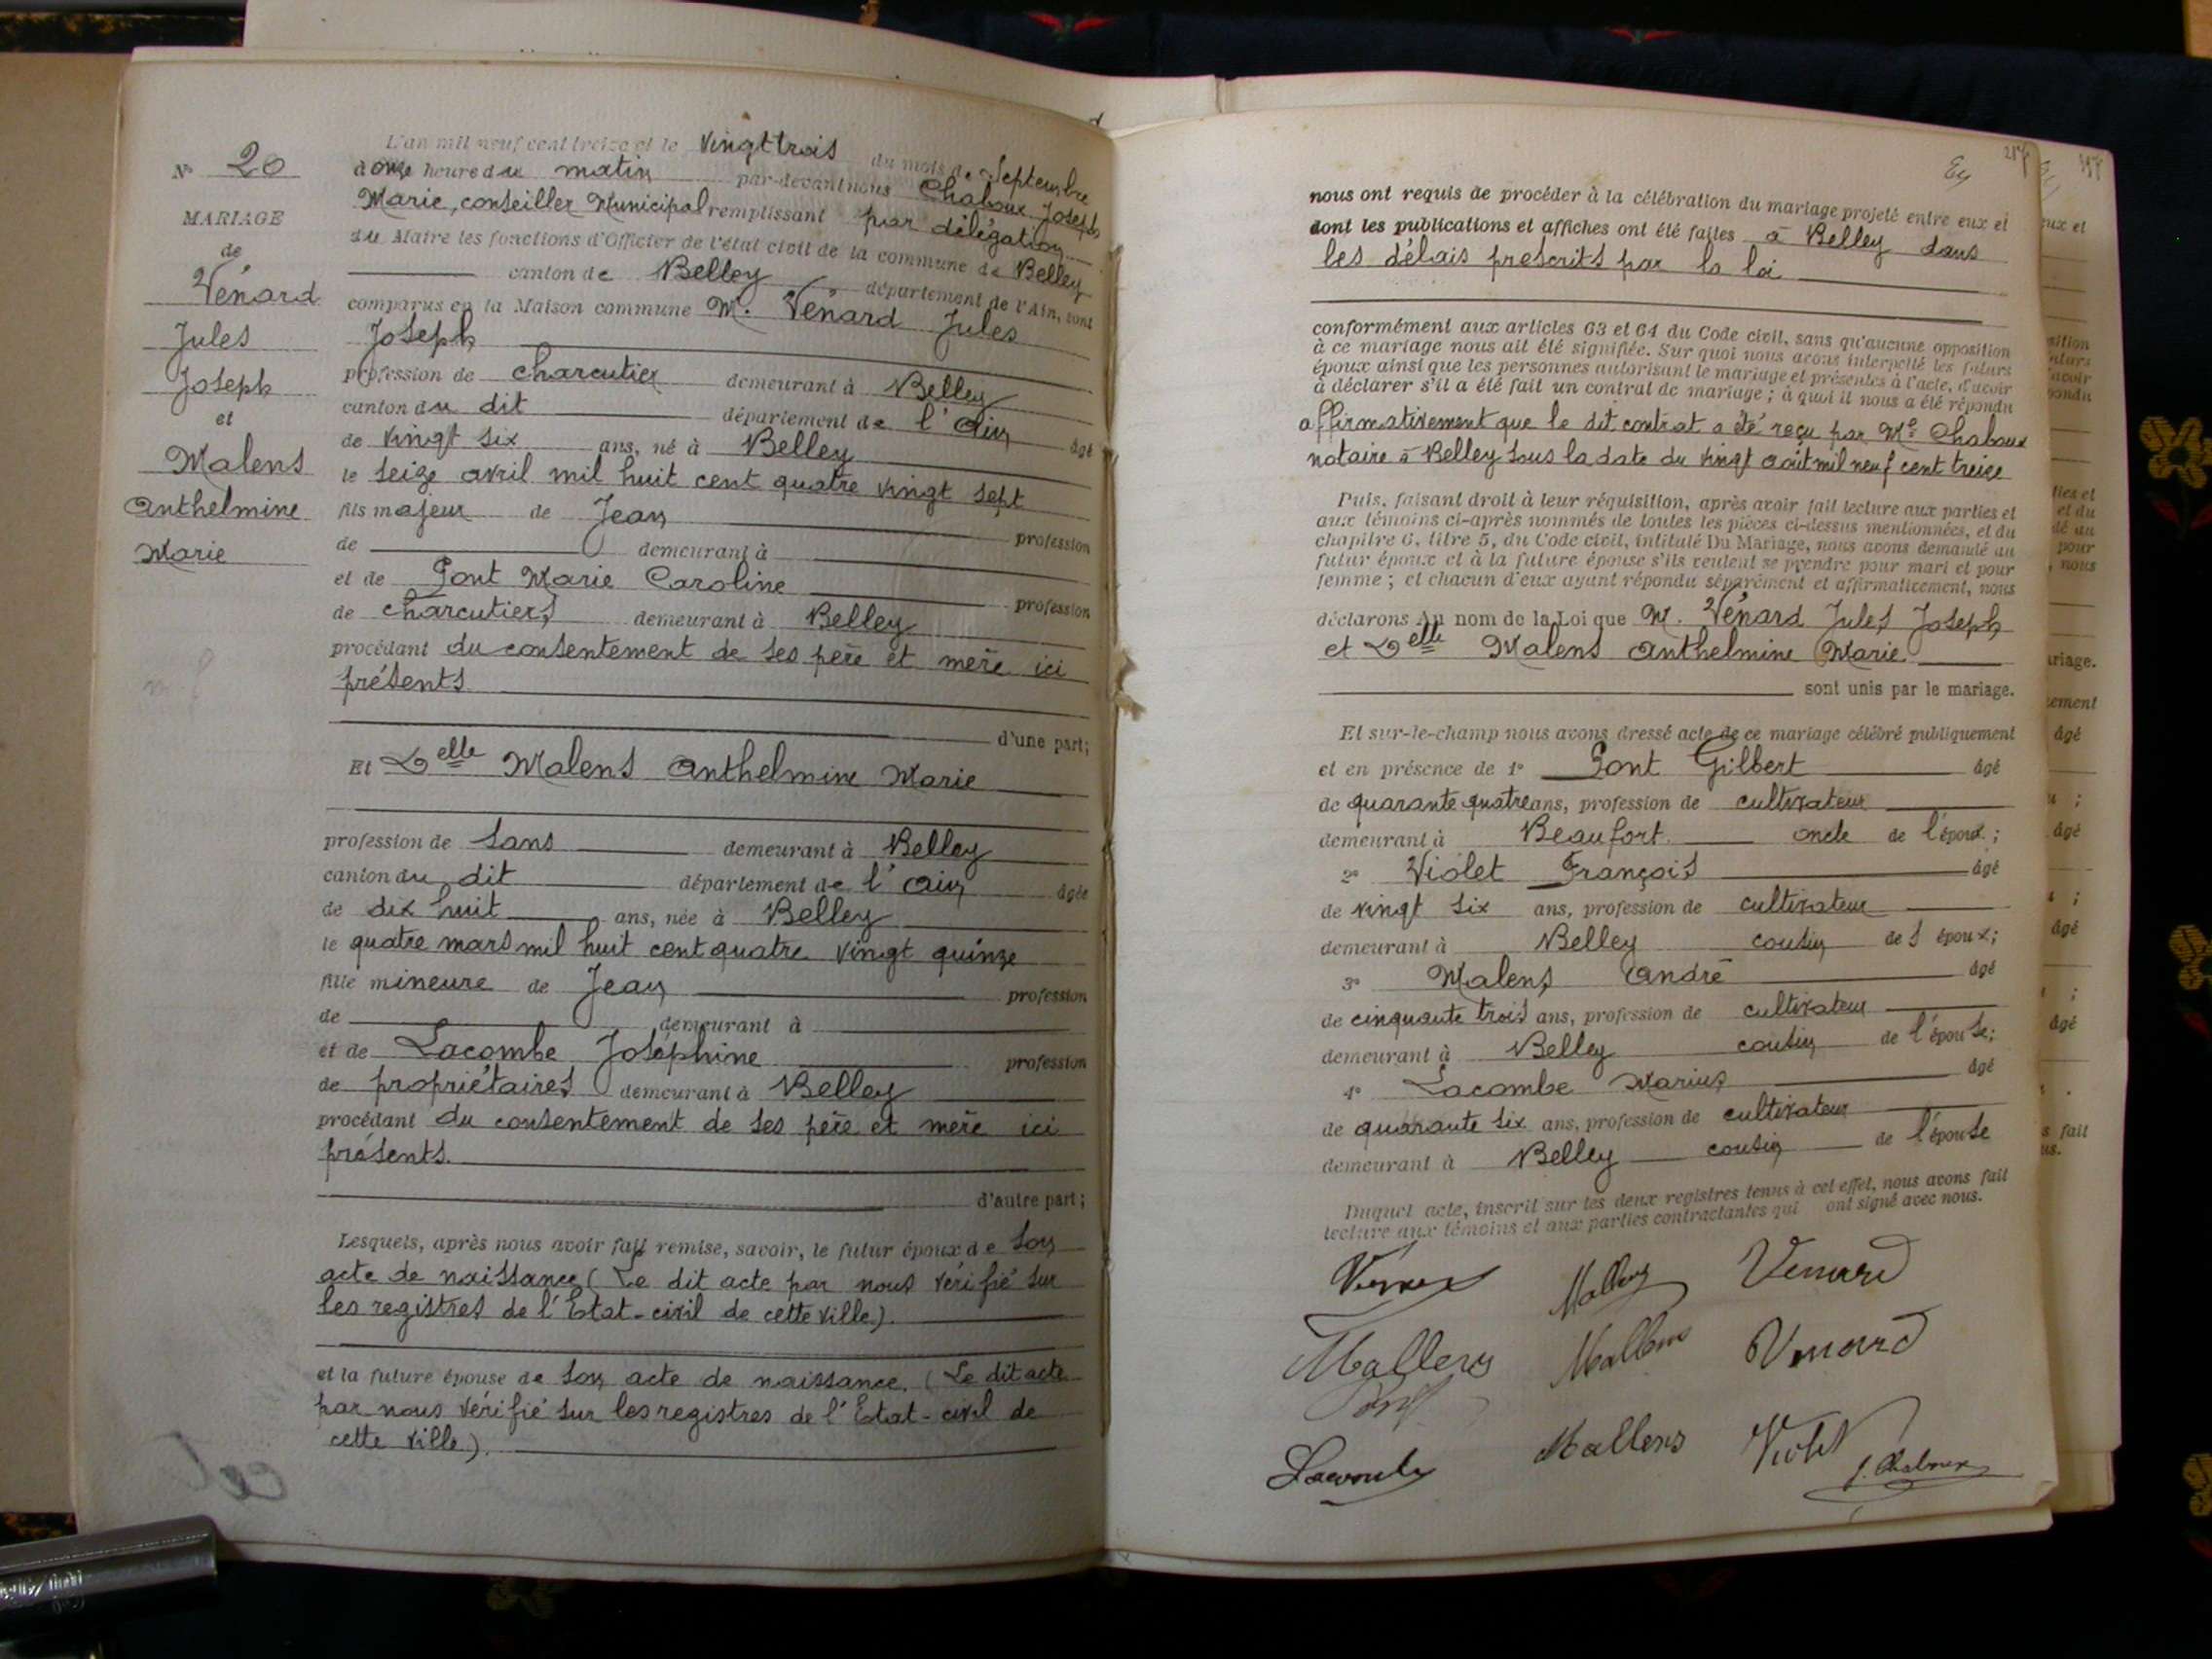 N° 20
MARIAGE
de
Vénard
Jules
Joseph
et
Malens
Anthelmine
Marie
L'an mil neuf cent treize et le vingt trois du mois de Septembre
à onze heure du matin par-devant nous Chaboux Joseph
Marie, conseiller Municipal remplissant par délégation
du Maire les fonctions d'Officier de l'état civil de la commune de Belley
canton de Belley département de l'Ain, sont
comparus en la Maison commune M. Vénard Jules
Joseph
profession de charcutier demeurant à Belley
canton du dit département de l'Ain âgé
de vingt six ans, né à Belley
le seize avril mil huit cent quatre vingt sept
fils majeur de Jean profession
de demeurant à
et de Pont Marie Caroline profession
de charcutiers demeurant à Belley
procédant du consentement de ses père et mère ici
présents.
d'une part;
Et Delle Malens Anthelmine Marie
profession de sans demeurant à Belley
canton du dit département de l'Ain âgée
de dix huit ans, née à Belley
le quatre mars mil huit cent quatre vingt quinze
fille mineure de Jean profession
de demeurant à
et de Lacombe Joséphine profession
de propriétaires demeurant à Belley
procédant du consentement de ses père et mère ici
présents.
d'autre part;
Lesquels, après nous avoir fait remise, savoir, le futur époux de son
acte de naissance (Le dit acte par nous vérifié sur
les registres de l'Etat-civil de cette ville).
et la future épouse de son acte de naissance. (Le dit acte
par nous vérifié sur les registres de l'Etat-civil de
cette ville).
nous ont requis de procéder à la célébration du mariage projeté entre eux et
dont les publications et affiches ont été faites à Belley dans
les délais prescrits par la loi
conformément aux articles 63 et 64 du Code civil, sans qu'aucune opposition
à ce mariage nous ait été signifiée. Sur quoi nous avons interpellé les futurs
époux ainsi que les personnes autorisant le mariage et présentes à l'acte, d'avoir
à déclarer s'il a été fait un contrat de mariage ; à quoi il nous a été répondu
affirmativement que le dit contrat a été reçu par Me Chaboux
notaire à Belley sous la date du vingt août mil neuf cent treize
Puis, faisant droit à leur réquisition, après avoir fait lecture aux parties et
aux témoins ci-après nommés de toutes les pièces ci-dessus mentionnées, et du
chapitre 6, titre 5, du Code civil, intitulé Du Mariage, nous avons demandé au
futur époux et à la future épouse s'ils veulent se prendre pour mari et pour
femme ; et chacun d'eux ayant répondu séparément et affirmativement, nous
déclarons Au nom de la Loi que M. Vénard Jules Joseph
et Delle Malens Anthelmine Marie
sont unis par le mariage.
Et sur-le-champ nous avons dressé acte de ce mariage célébré publiquement
et en présence de 1° Pont Gilbert âgé
de quarante quatre ans, profession de cultivateur
demeurant à Beaufort. oncle de l'époux ;
2° Violet François âgé
de vingt six ans, profession de cultivateur
demeurant à Belley cousin de l époux;
3° Malens André âgé
de cinquante trois ans, profession de cultivateur
demeurant à Belley cousin de l'épouse;
4° Lacombe Marius âgé
de quarante six ans, profession de cultivateur
demeurant à Belley cousin de l'épouse
Duquel acte, inscrit sur les deux registres tenus à cet effet, nous avons fait
lecture aux témoins et aux parties contractantes qui ont signé avec nous.
Venard
Mallens Mallens Venard
Pont
Lacombe Mallens Violet J. Chaboux